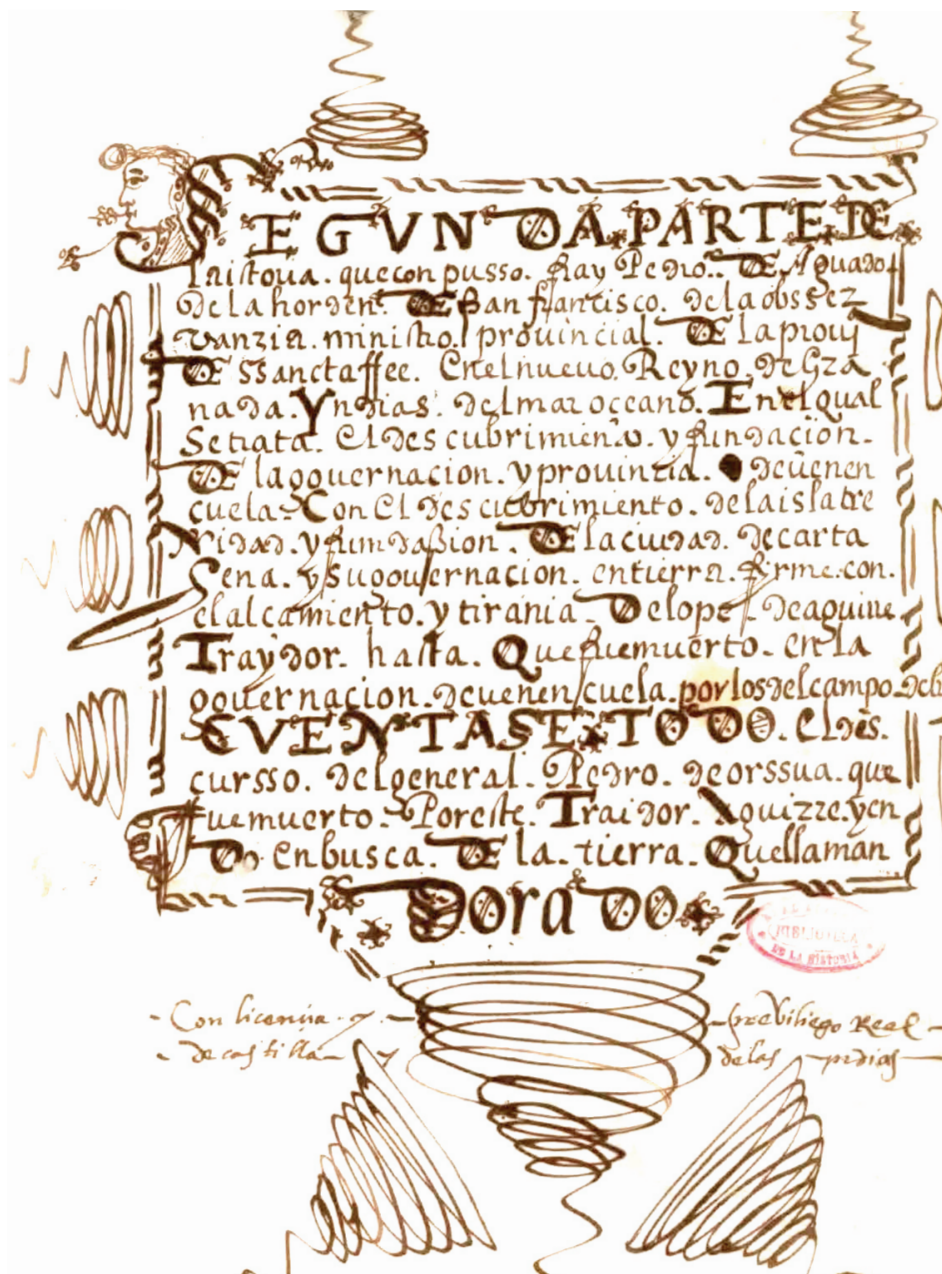 SEGUNDA PARTE DE
la istoria. que con pusso. fray Pedro. DE Aguado
de la horden. DE San francisco. de la obsser
vanzia. ministro. provincial. DE la provi
DE SSanctaffee. En el nuevo. Reyno. de Gra
nada. Yndias. del mar oceano. En el qual
Se trata. El des cubrimiento. y fundacion.
DE la governacion. y provinzia. de venen
cuela. Con El des cubrimiento. de la isla tre
nidad. y fundaßion. DE la ciudad. de carta
Gena. y su governacion. en tierra. firme. con.
el alcamiento. y tirania. De lope. de aguirre
Traydor. hasta. Que fue muerto. en la
governacion. de venen cuela. por los del campo. del
CVENTASE TODO. El des.
cursso. del general. Pedro. de orssua. que
fue muerto. Por este. Traidor. Aguirre. yen
Do en busca. DE la. tierra. Que llaman
Dorado
Con licencia. y. previliego Real
de castilla y de las yndias
BIBLIOTECA
DE LA HISTORIA